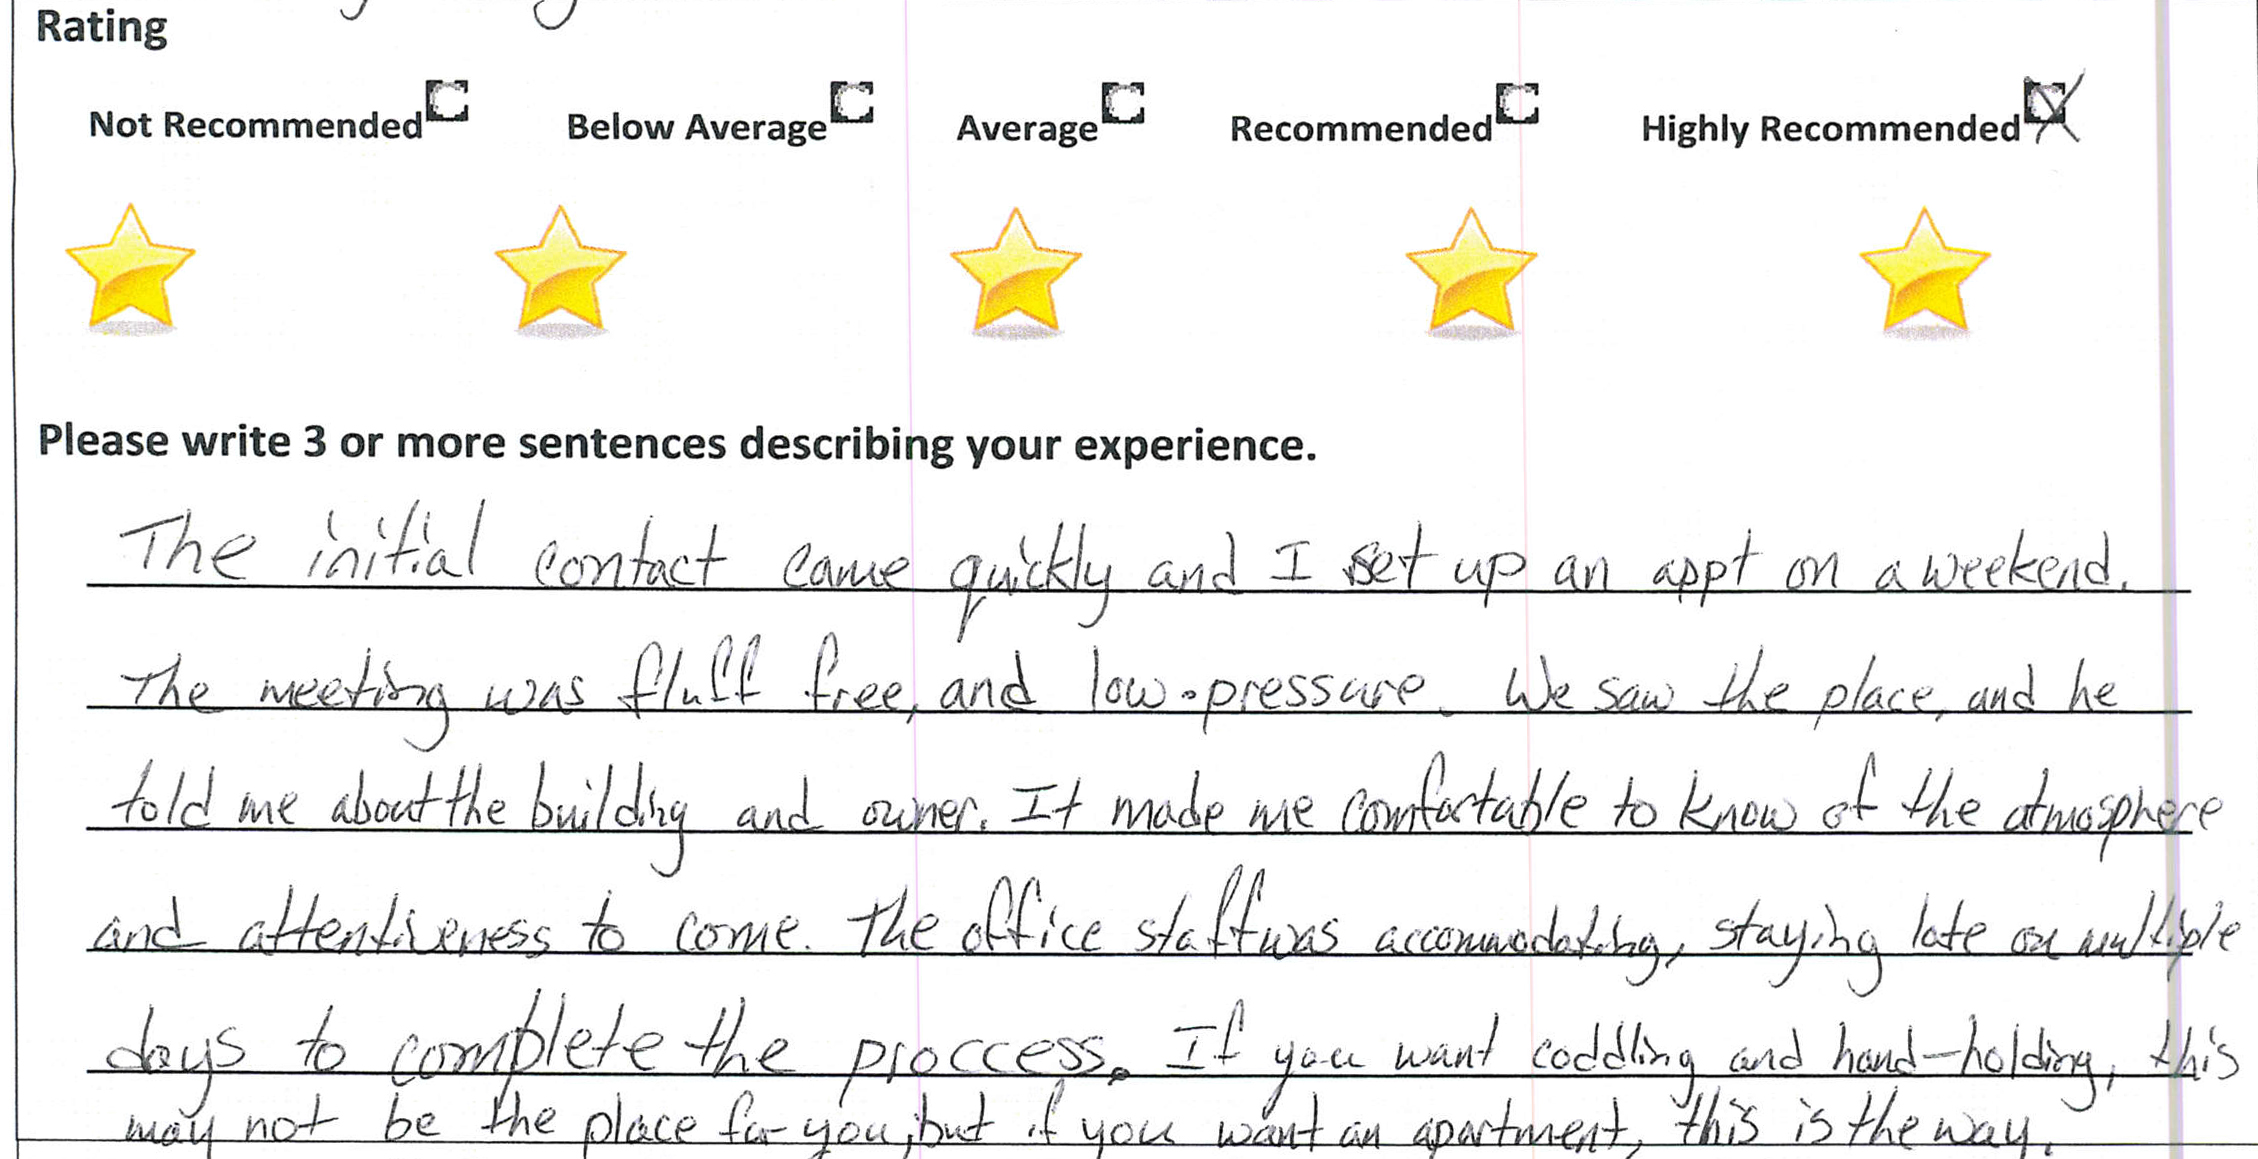 Rating
Not Recommended Below Average Average Recommended Highly Recommended
Please write 3 or more sentences describing your experience.
The initial contact came quickly and I set up an appt on a weekend.
The meeting was fluff free, and low-pressure. We saw the place, and he
told me about the building and owner. It made me comfortable to know of the atmosphere
and attentiveness to come. The office staff was accommodating, staying late on multiple
days to complete the proccess. If you want coddling and hand-holding, this
may not be the place for you, but if you want an apartment, this is the way.